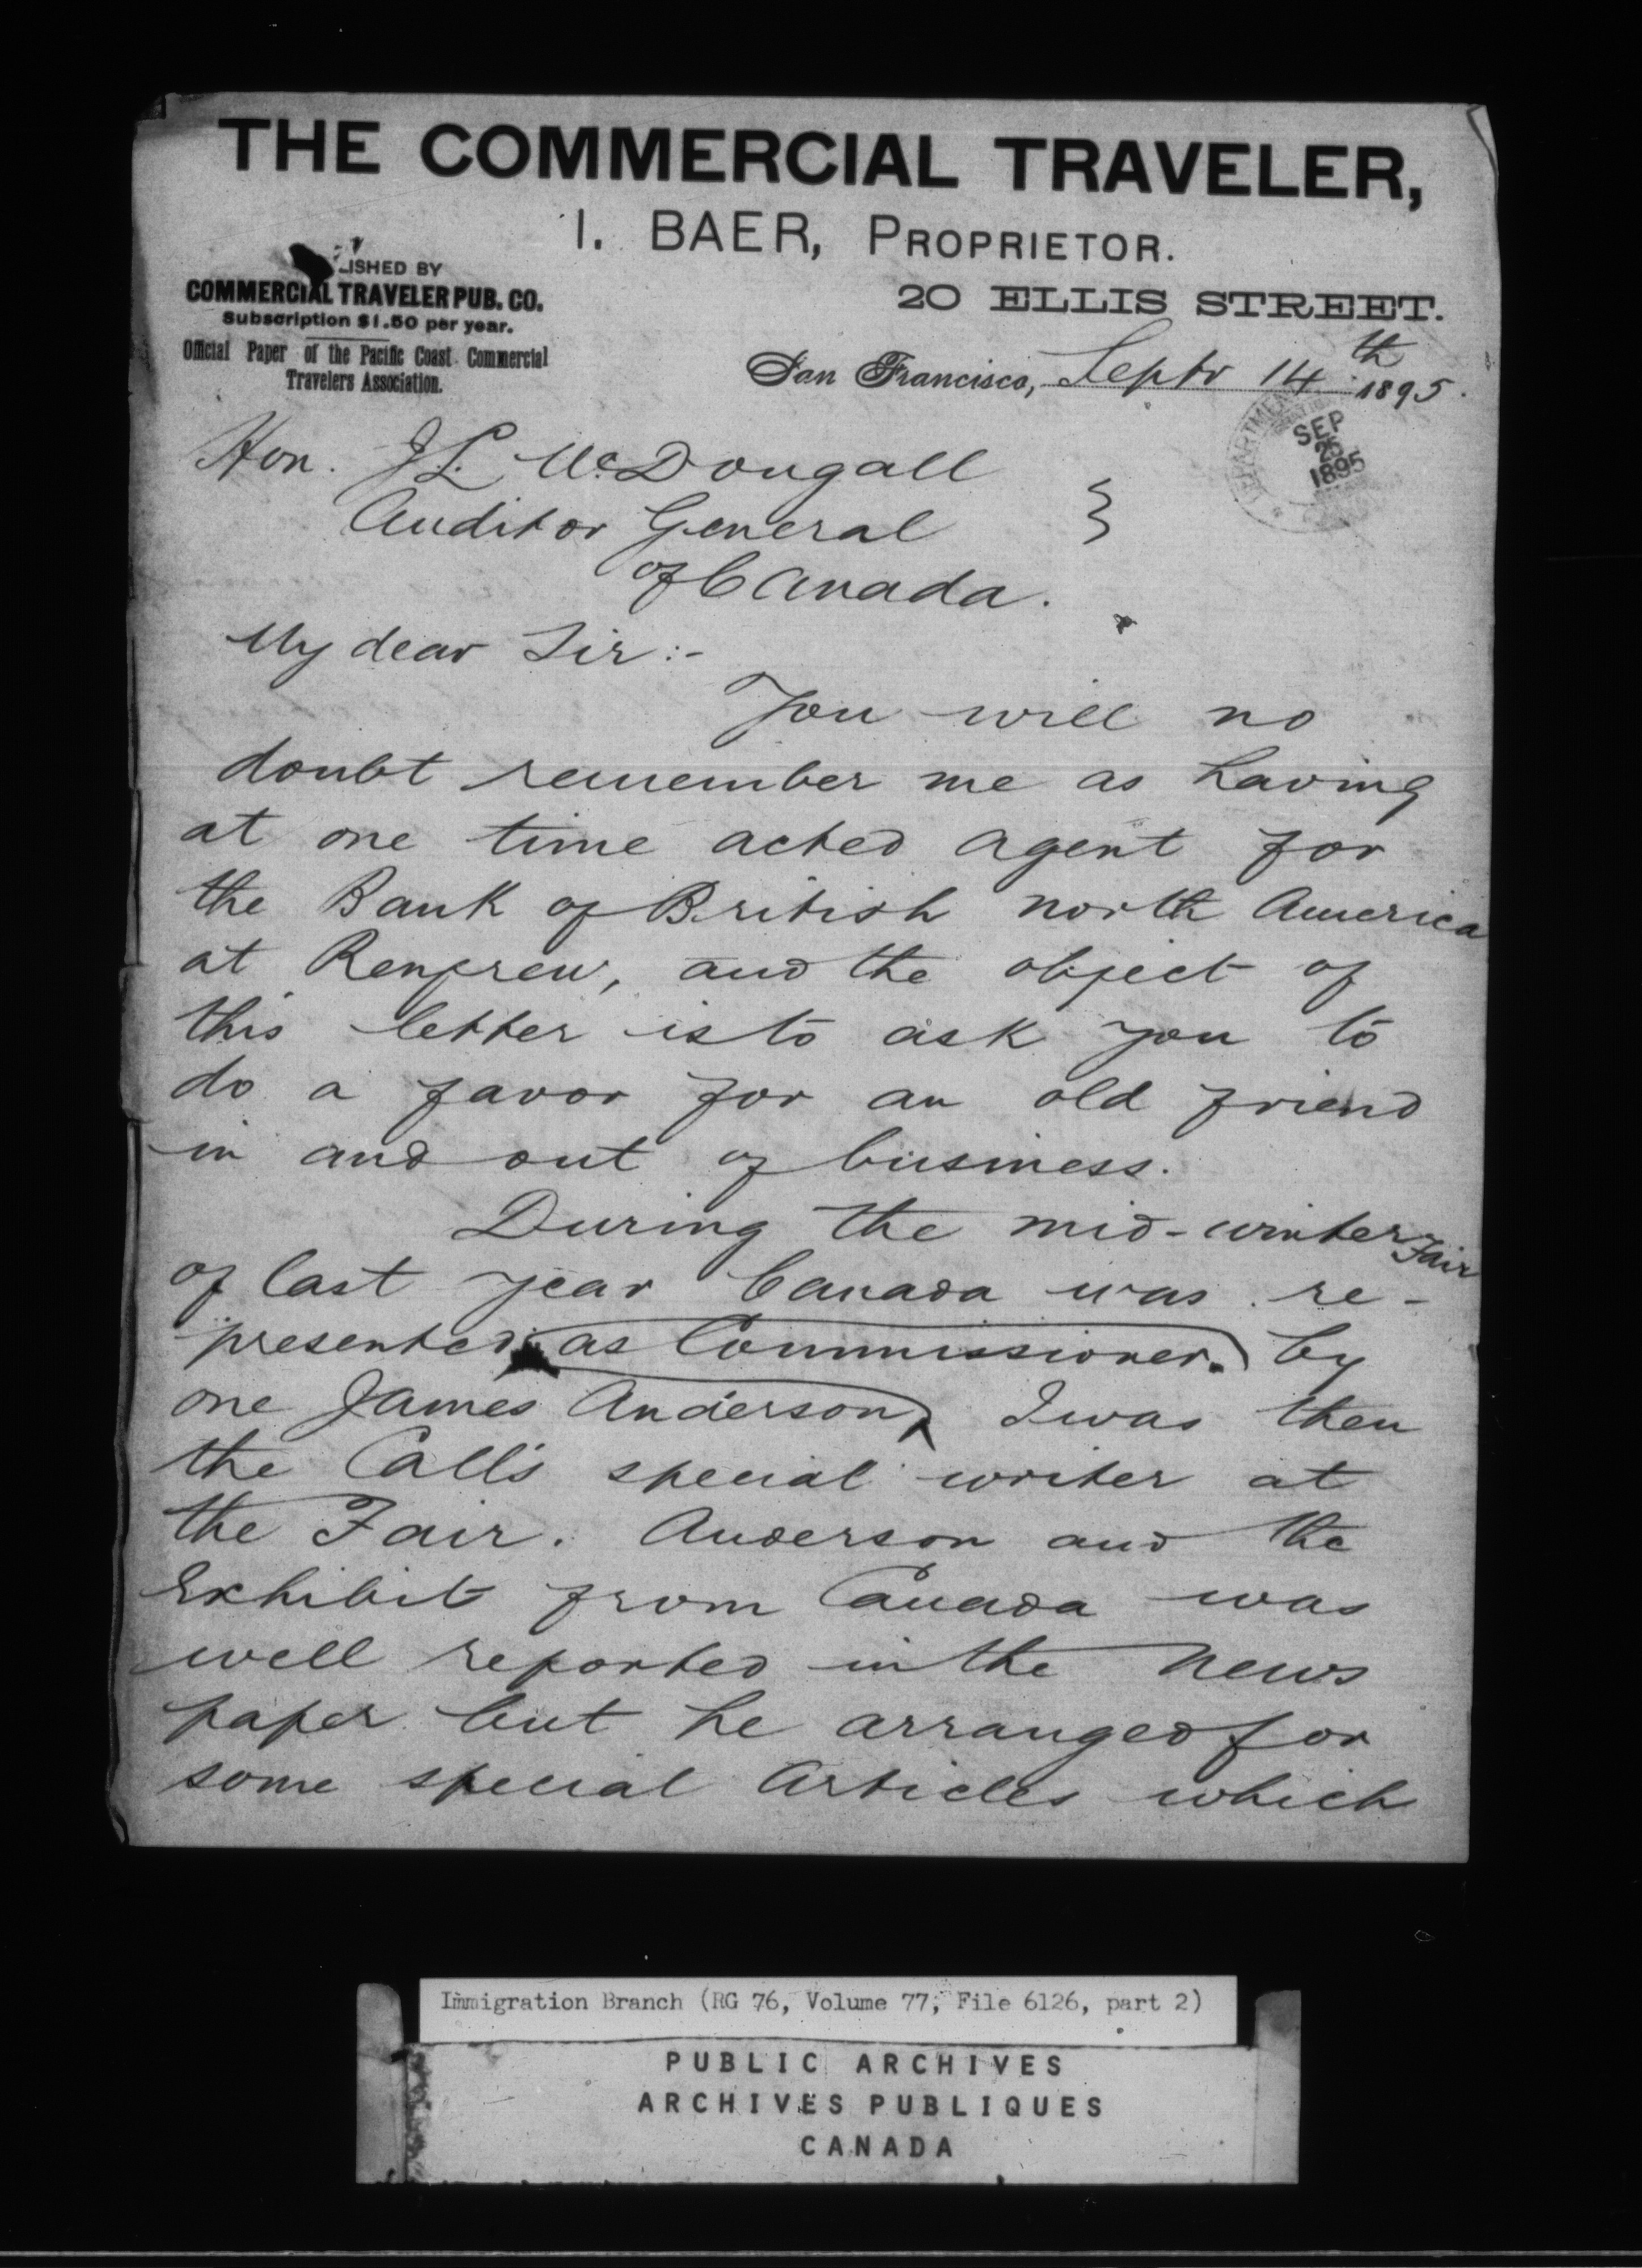 THE COMMERCIAL TRAVELER,
I. BAER, PROPRIETOR.
LISHED BY
COMMERCIAL TRAVELER PUB. CO.
Subscription $1.50 per year.
Official Paper of the Pacific Coast Commercial
Travelers Association.
20 ELLIS STREET.
San Francisco, Septr 14th 1895.
DEPARTMENT
SEP
1895
Hon. J L. McDougall
Auditor General
of Canada.
My dear Sir:-
You will no
doubt remember me as having
at one time acted agent for
the Bank of British north America
at Renfrew, and the object of
this letter is to ask you to
do a favor for an old friend
in and out of business.
During the mid-winter Fair
of last year Canada was re-
presented as Commissioner. by
one James Anderson, I was then
the Call's special writer at
the Fair. Anderson and the
Exhibit from Canada was
well reported in the news
paper but he arranged for
some special Articles which
Immigration Branch (RG 76, Volume 77, File 6126, part 2)
PUBLIC ARCHIVES
ARCHIVES PUBLIQUES
CANADA